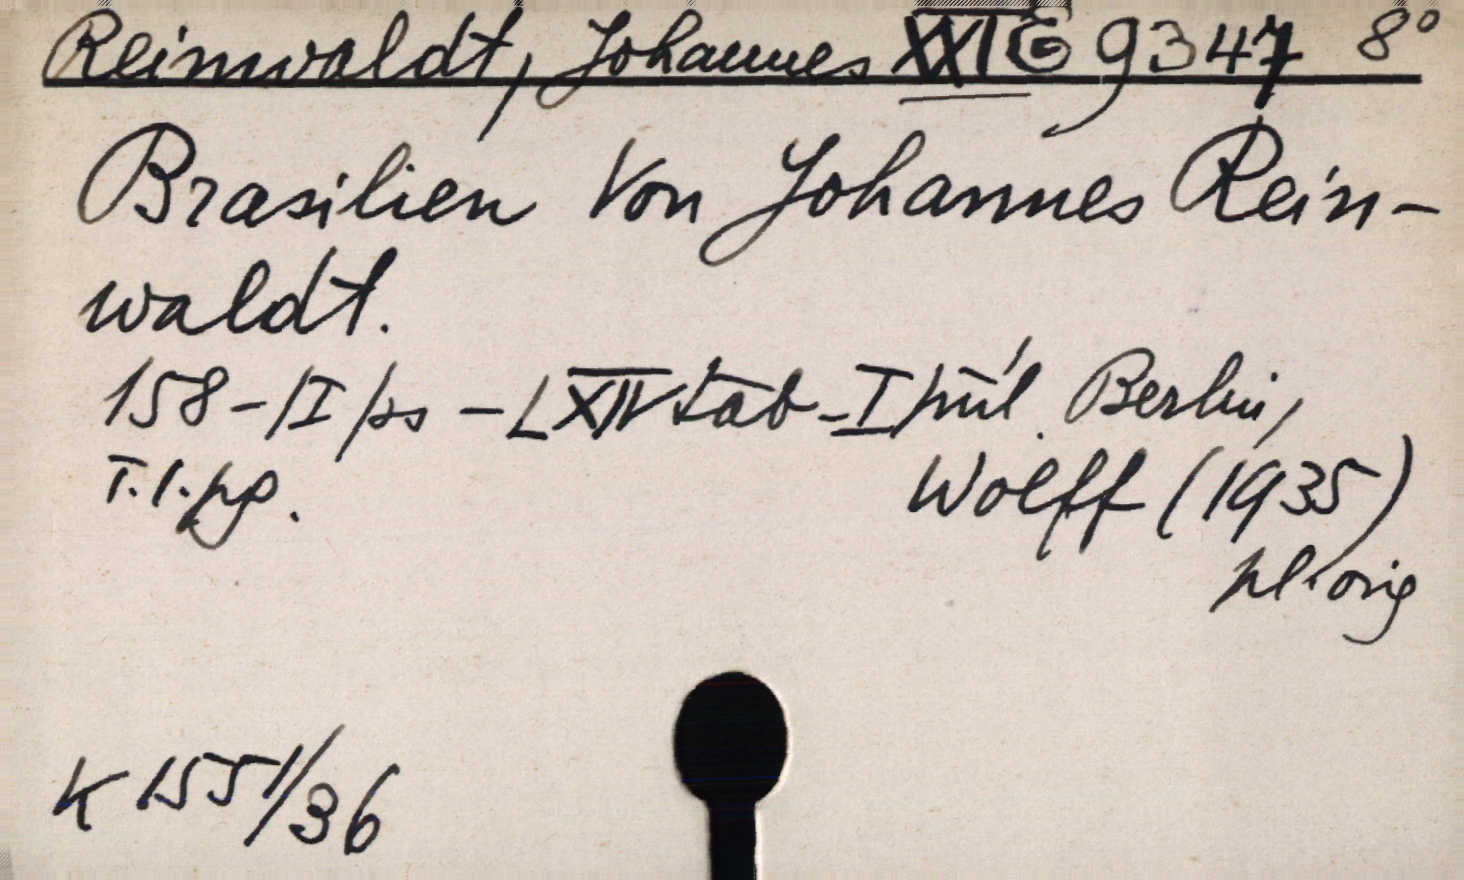 Reinwaldt, Johannes XXI E 9347 8°
Brasilien Von Johannes Rein-
waldt.
158-/I/ss - LXIV tab - I příl. Berlin,
T.l.pg. Wolff (1935)
pl. orig
K 1551/36